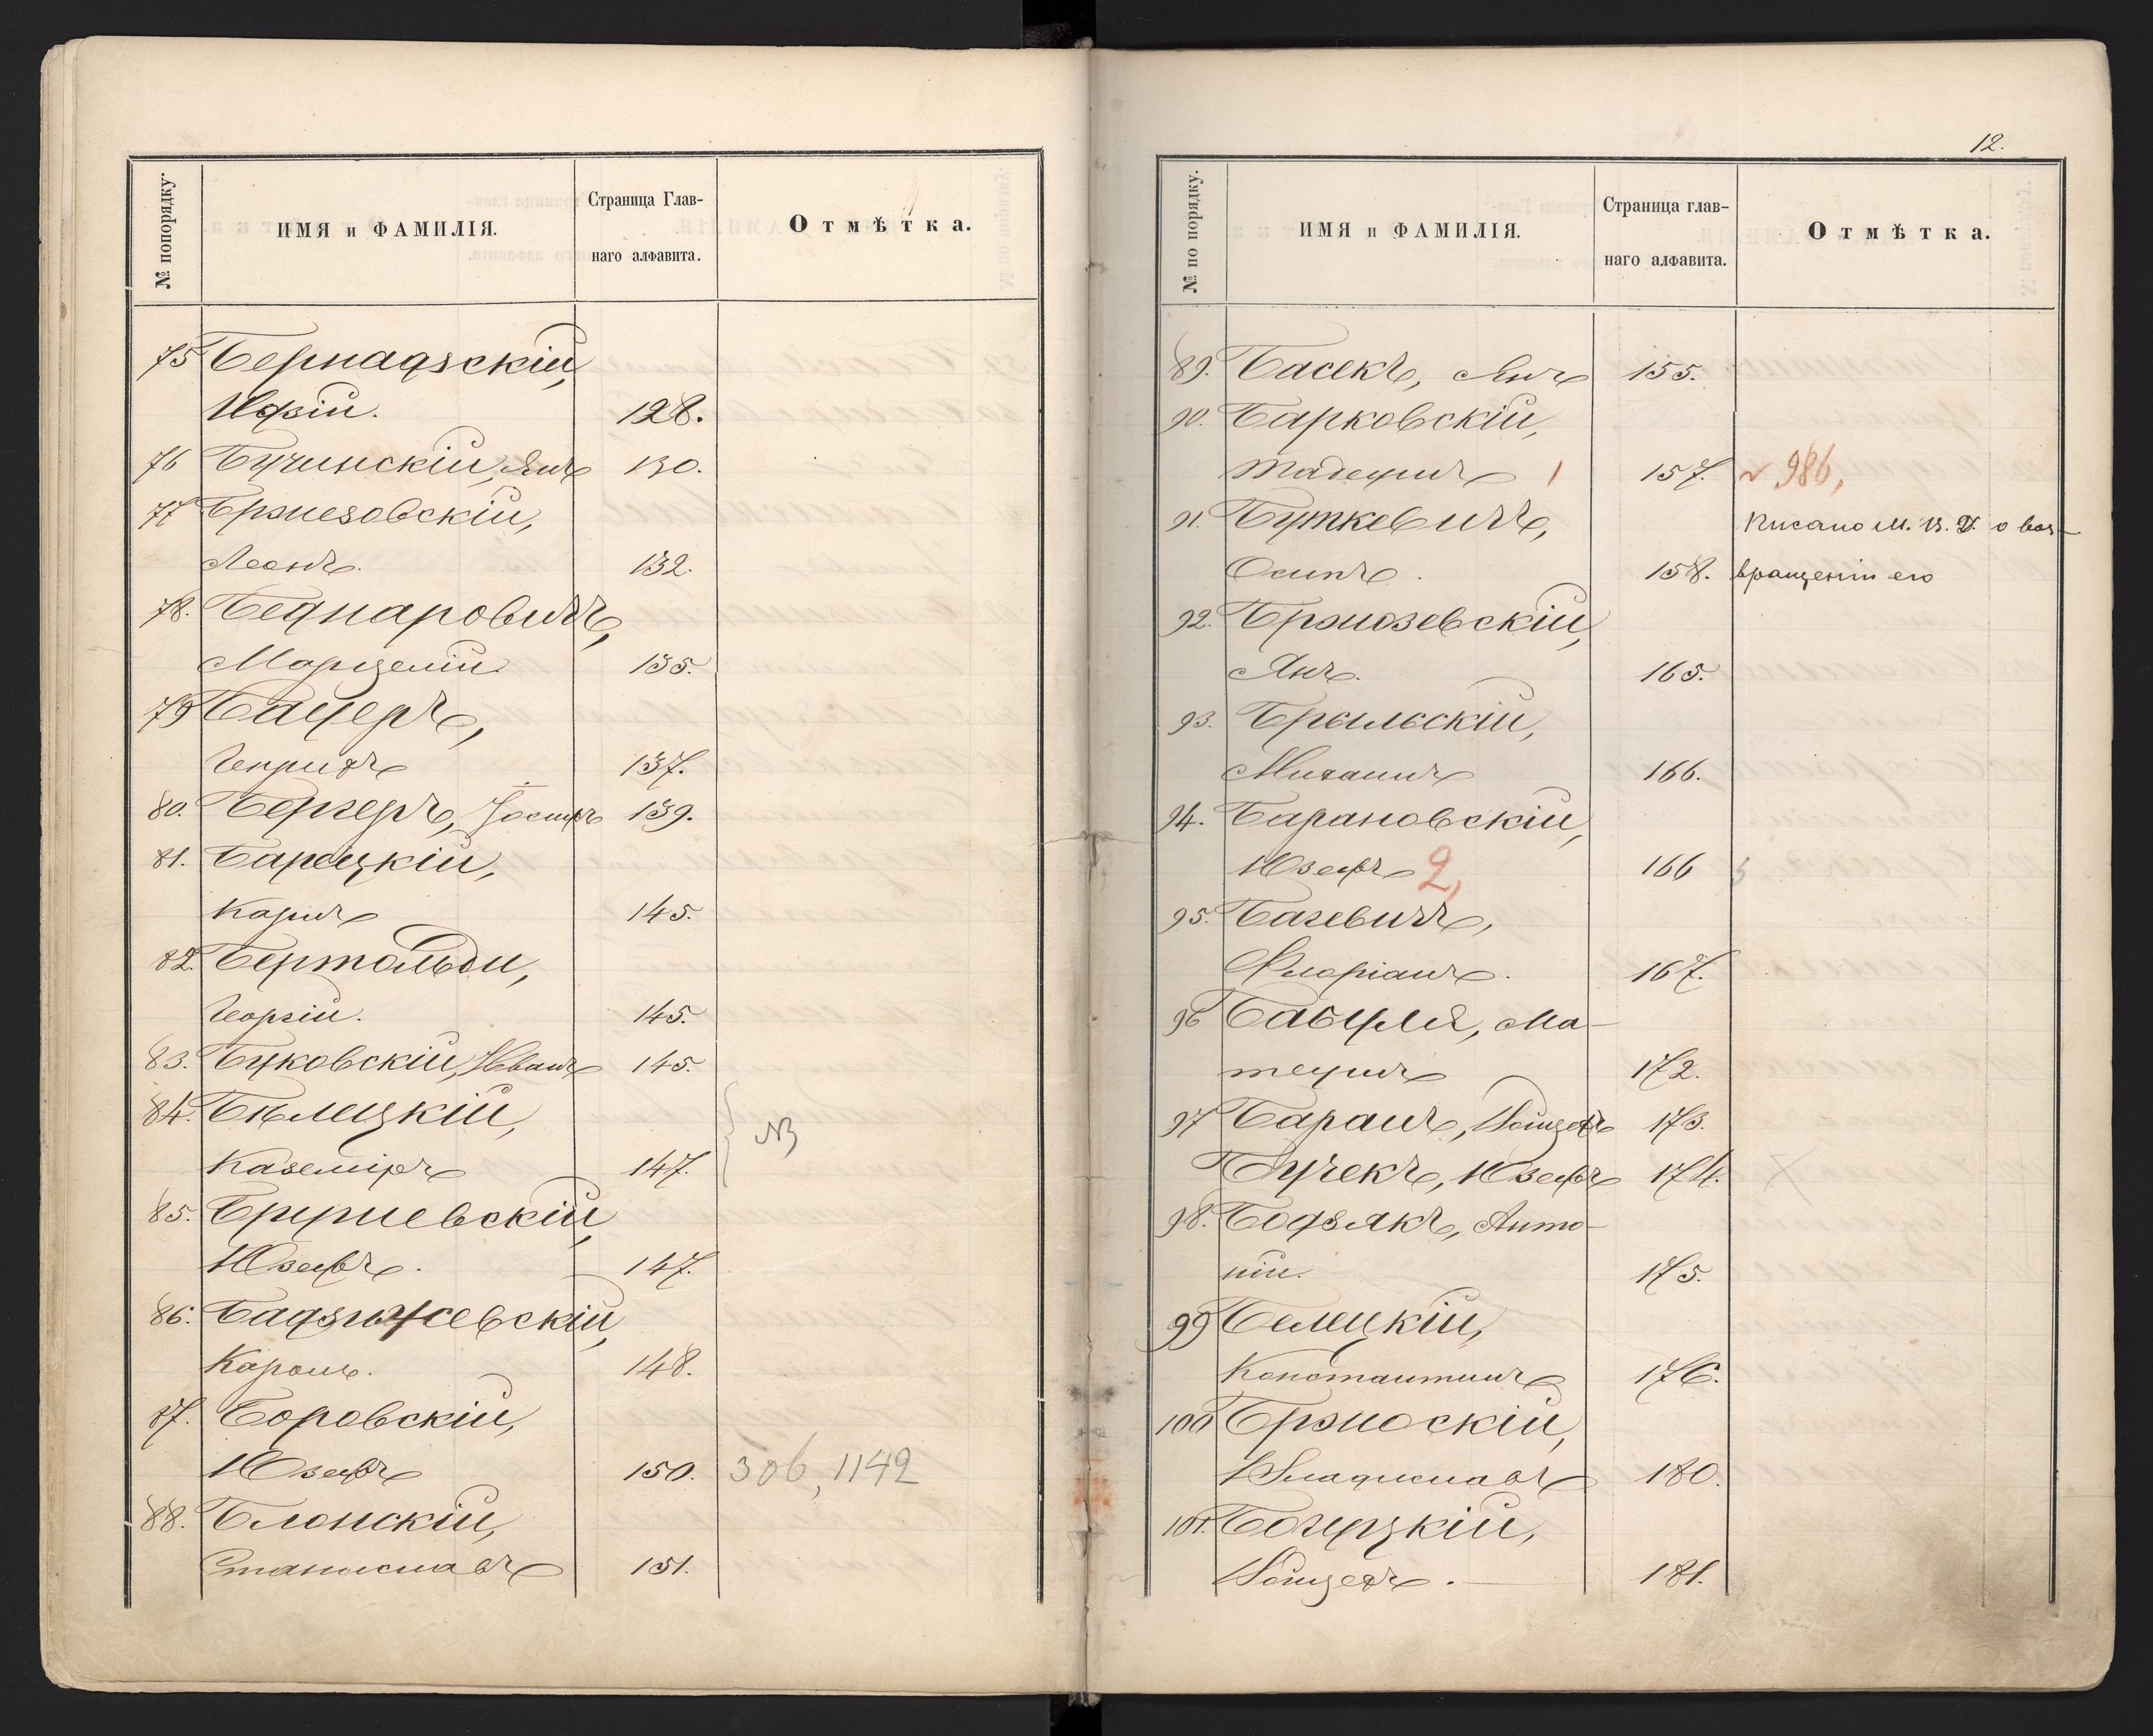 № попорядку.
ИМЯ и ФАМИЛІЯ.
Страница Глав-
наго алфавита.
Отмѣтка.
75 Бернадзскій,
Идзій. 128.
76 Бучинскій, Янъ 130.
77 Брзнезовскій,
Леонъ. 132.
78. Беднаровичъ,
Марцелій 135.
79 Бауеръ,
Генрихъ 137.
80. Бергеръ, Іосифъ 139.
81. Барецкій,
Карлъ 145.
82. Бертольди,
Георгій. 145.
83. Буковскій, Иванъ 145.
84. Бѣлецкій,
Каземіръ 147. NB
85. Бруриевскій,
Юзефъ. 147.
86. Бадзыжевскій,
Кароль. 148.
87. Боровскій,
Юзефъ 150. 306, 1142
88. Блонскій,
Станиславъ 151.
12.
№ по порядку.
ИМЯ и ФАМИЛІЯ.
Страница глав-
наго алфавита.
Отмѣтка.
89. Басекъ, Янъ 155.
90. Барковскій,
Тадеушъ 1 157. 986,
91. Буткевичъ, Писано М. В. Д. о воз-
Осипъ. 158. вращеніи его
92. Брзнозевскій,
Янъ. 165.
93. Брыльскій,
Михаилъ 166.
94. Барановскій,
Юзефъ 2, 166
95. Багевичъ,
Флоріанъ. 167.
96 Бабуля, Ма-
теушъ 172.
97 Баранъ, Войцехъ 173.
Бучекъ, Юзефъ 174. X
98. Бодзякъ, Анто-
ній. 175.
99 Белецкій,
Константинъ 176.
100 Брзноскій,
Владиславъ 180.
101. Богуцкій,
Войцехъ. 181.